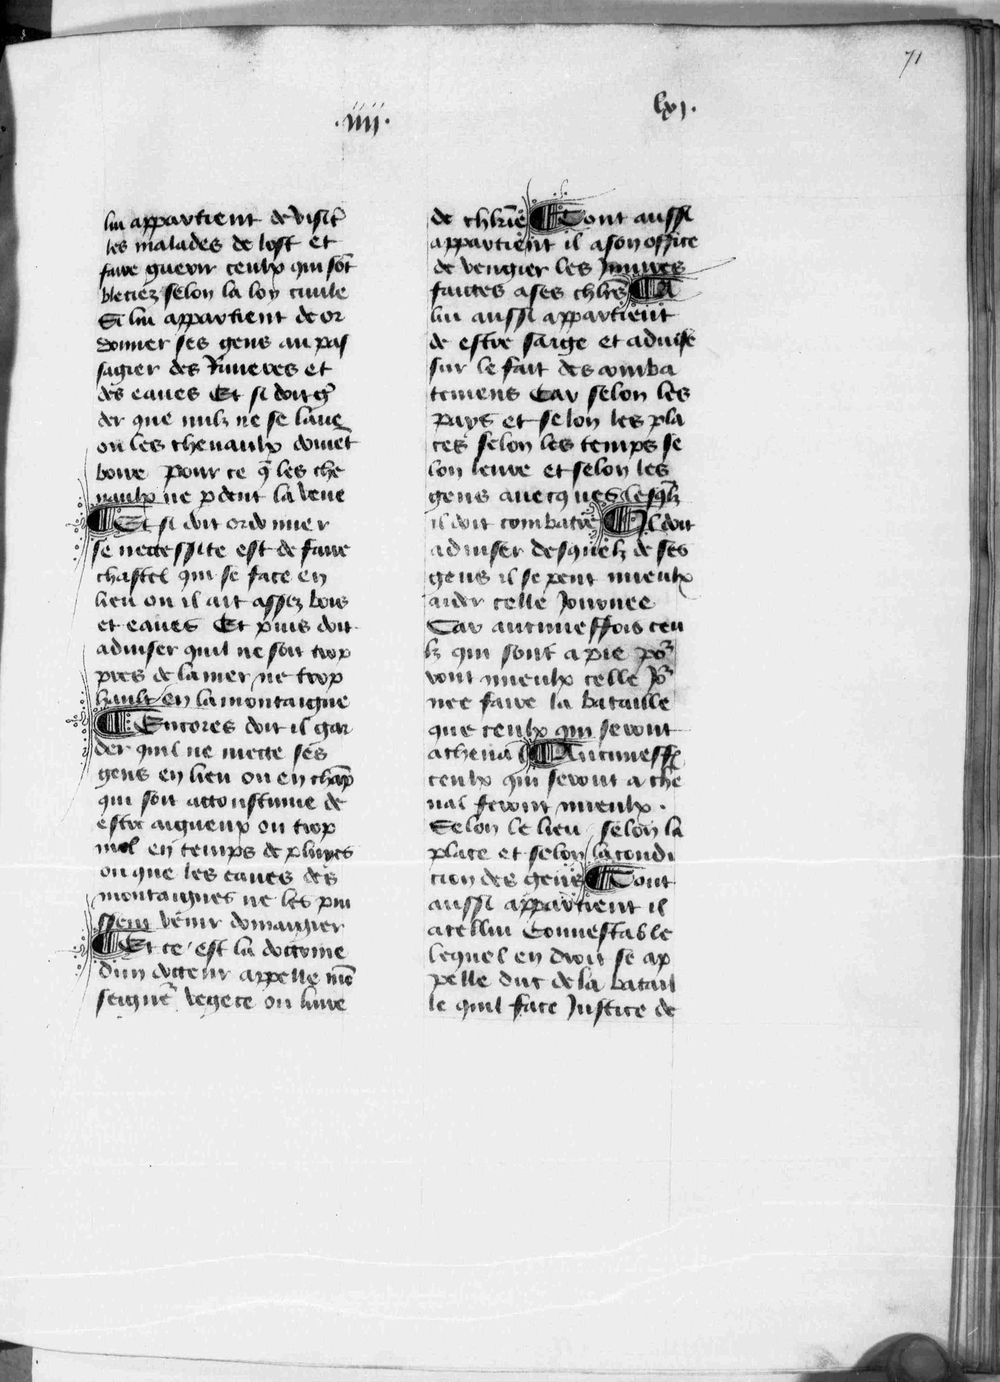 71
.iiij.
lxj.
lui appartient de visit̃
les malades de lost et
faire guerir ceulx qui sõt
bleciez selon la loy ciuile
Si lui appartient de or
donner ses gens au pas
sagier des Riuieres et
des eaues Et si doit g̃
der que nulz ne se laue
ou les cheuaulx doiuẽt
boire pour ce q̃ les che
uaulx ne pdent la veue
¶ Et si doit ordonner
se necessite est de faire
chastel qui se face en
lieu ou il ait assez bois
et eaues Et puis doit
aduiser quil ne soit trop
pres de la mer ne trop
hault en la montaigne
¶ Encores doit il gar
der quil ne mecte ses
gens en lieu ou en chãp
qui soit acoustume de
estre aigueux ou trop
mol en temps de pluyes
ou que les eaues des
montaignes ne les pui
ssent venir domaigier
¶ Et ce est la doctrine
dun docteur appelle mõ
seignẽr vegece ou liure
de chlr̃ie ¶ Tout aussi
appartient il a son office
de vengier les Iniures
faictes a ses chlr̃s ¶ A
lui aussi appartient
de estre saige et aduise
sur le fait des comba
temens Car selon les
pays et selon les pla
ces selon les temps se
lon leure et selon les
gens auecques lesq̃lz
il doit combatre ¶ Il doit
aduiser desquelz de ses
gens il se peut mieulx
aider celle Iournee
Car aucuneffois ceu
lx qui sont a pie po᷑
ront mieulx celle Io᷑
nee faire la bataille
que ceulx qui seront
a cheual ¶ Aucuneff̃
ceulx qui seront a che
ual feront mieulx .
Selon le lieu selon la
place et selon la condi
cion des gens ¶ Tout
aussi appartient il
a cellui Connestable
lequel en droit se ap
pelle duc de la batail
le quil face Iustice de